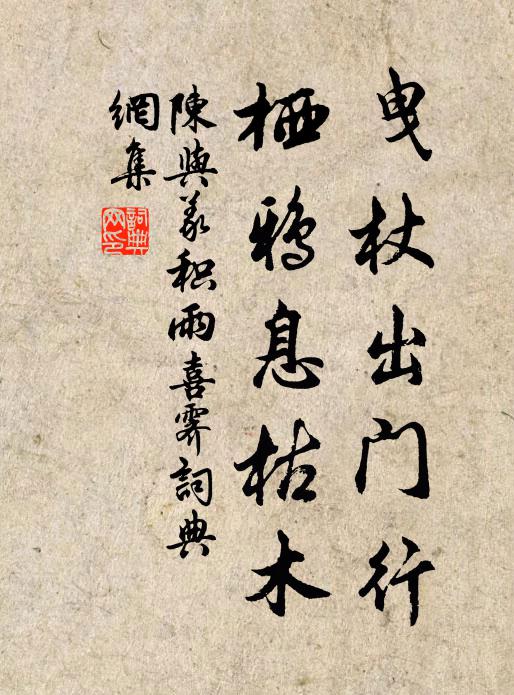 曳杖出门行
栖鸦息枯木
陳與义积雨喜霁詞典
網集
詞典
网印